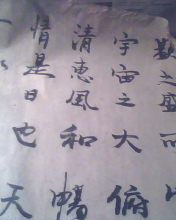 類之盛所
宇宙之大俯
清惠風和暢
情是日也天